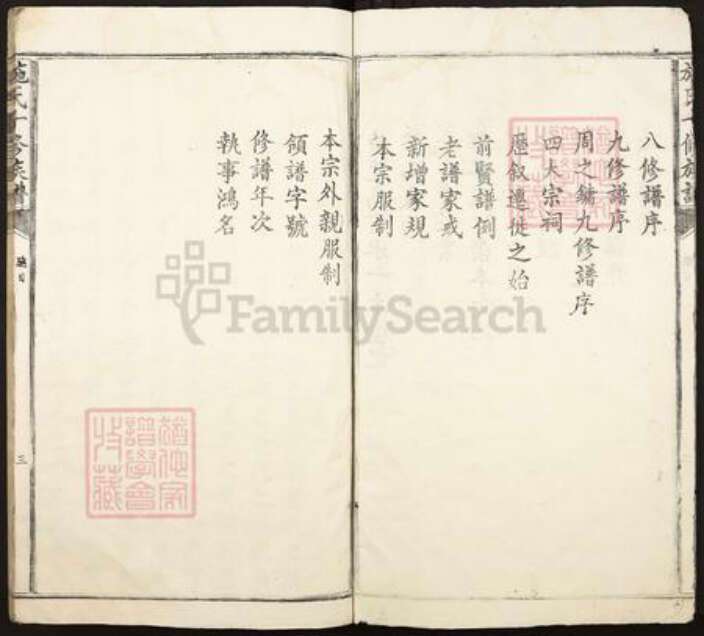 八修譜序
九修譜序
周之鏞九修譜序
四大宗祠
歷叙遷徙之始
前賢譜例
老譜家戒
新增家規
本宗服制
本宗外親服制
領譜字號
修譜年次
執事鴻名
施氏十修族譜
三
FamilySearch
猶他家
譜學會
收藏